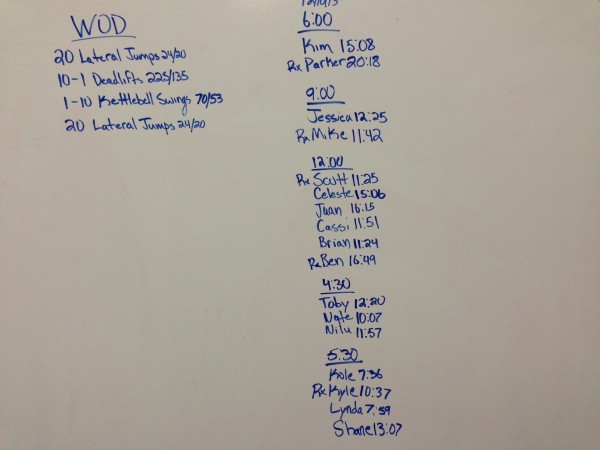 WOD
20 Lateral Jumps 24/20
10-1 Deadlifts 225/135
1-10 Kettlebell Swings 70/53
20 Lateral Jumps 24/20
6:00
Kim 15:08
Rx Parker 20:18
9:00
Jessica 12:25
Rx Mike 11:42
12:00
Rx Scott 11:25
Celeste 15:06
Juan 16:15
Cassi 11:51
Brian 11:24
Rx Ben 16:49
4:30
Toby 12:20
Nate 10:07
Nilu 11:57
5:30
Kole 7:36
Rx Kyle 10:37
Lynda 7:59
Shane 13:07